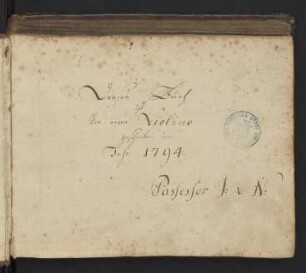 Dieses Buch
ist
für eine Violino
geschrieben im
Jahr 1794
Possessor J: v K: